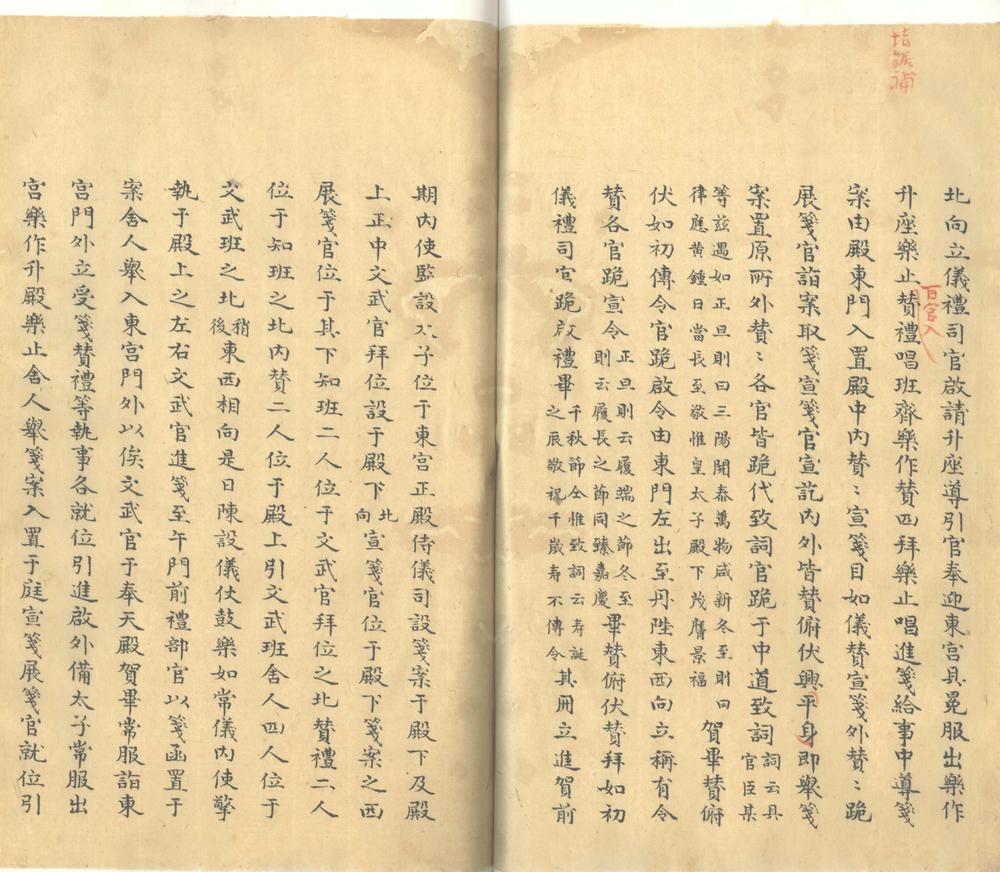 北向立儀禮司官啟請升座導引官奉迎東宮具冕服出樂作
百官入
升座樂止贊禮唱班齊樂作贊四拜樂止唱進箋給事中導箋
案由殿東門入置殿中內贊〻宣箋目如儀贊宣箋外贊〻跪
展箋官詣案取箋宣箋官宣訖內外皆贊俯伏興平身即舉箋
案置原所外贊〻各官皆跪代致詞官跪于中道致詞詞云具官臣某
等茲遇如正旦則曰三陽開泰萬物咸新冬至則曰
律應黃鍾日當長至敬惟皇太子殿下茂膺景福賀畢贊俯
伏如初傳令官跪啟令由東門左出至丹陛東西向立稱有令
贊各官跪宣令正旦則云履端之節冬至則云履長之節同臻嘉慶畢贊俯伏贊拜如初
儀禮司官跪啟禮畢千秋節仝惟致詞云壽誕之辰敬祝千歲壽不傳令其冊立進賀前
期內使監設太子位于東宮正殿侍儀司設箋案于殿下及殿
上正中文武官拜位設于殿下北向宣箋官位于殿下箋案之西
展箋官位于其下知班二人位于文武官拜位之北贊禮二人
位于知班之北內贊二人位于殿上引文武班舍人四人位于
文武班之北稍後東西相向是日陳設儀仗鼓樂如常儀內使擎
執于殿上之左右文武官進箋至午門前禮部官以箋函置于
案舍人舉入東宮門外以俟文武官于奉天殿賀畢常服詣東
宮門外立受箋贊禮等執事各就位引進啟外備太子常服出
宮樂作升殿樂止舍人舉箋案入置于庭宣箋展箋官就位引